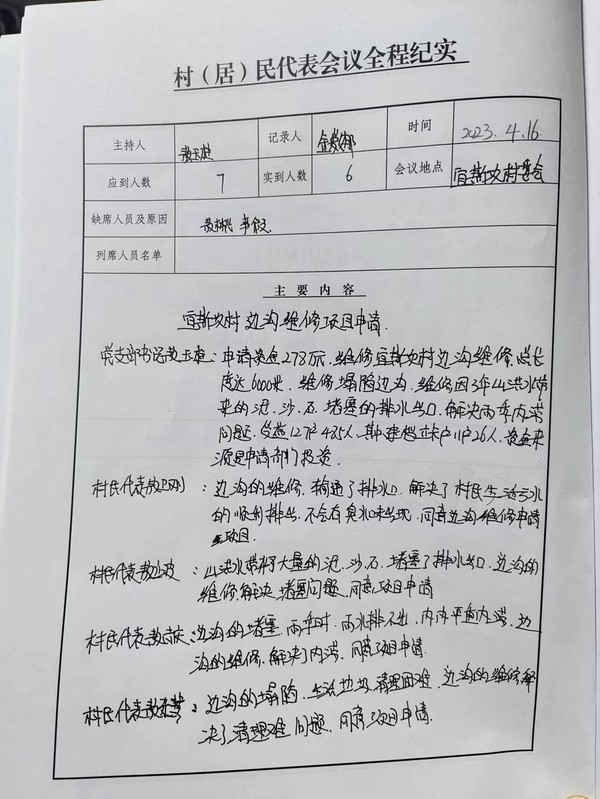 村（居）民代表会议全程纪实
主持人 记录人 时间 2023.4.16
应到人数 7 实到人数 6 会议地点 宜斯坎村委会
缺席人员及原因 事假
列席人员名单
主要内容
宜斯坎村边沟维修项目申请
党支部书记 玉 ：申请资金278万元，维修宜斯坎村边沟维修，总长
度达6000米，维修塌陷边沟，维修因3年山洪水带
来的泥、沙、石堵塞的排水出口，解决雨季内涝
问题，受益127户485人，其中建档立卡户11户26人，资金来
源是申请部门投资。
村民代表 ：边沟的维修，疏通了排水口，解决了村民生活污水
的顺利排出，不会有臭水味出现，同意边沟维修申请
项目
村民代表 ：山洪水带来了大量的泥、沙石，堵塞了排水出口，边沟的
维修解决堵塞问题，同意项目申请
村民代表 ：边沟的堵塞，雨季时，雨水排不出，内涝，边
沟的维修，解决了内涝，同意项目申请
村民代表 ：边沟的塌陷，生活垃圾清理困难，边沟的维修解
决了清理难问题，同意项目申请